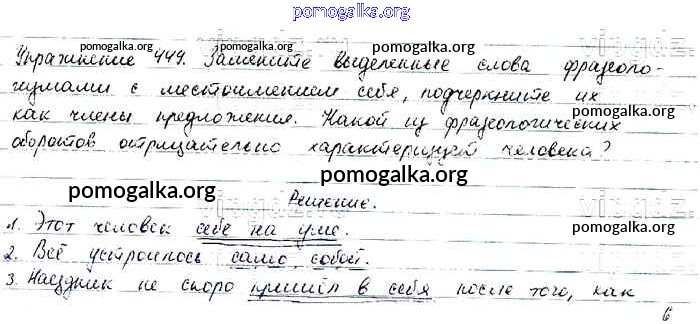 pomogalka.org
Упражнение 449. Замените выделенные слова фразеоло-
pomogalka.org pomogalka.org
гизмами с местоимением себя, подчеркните их
как члены предложения. Какой из фразеологических
оборотов отрицательно характеризует человека?
pomogalka.org pomogalka.org
Решение.
1. Этот человек себе на уме.
pomogalka.org pomogalka.org
2. Всё устроилось само собой.
3. Наездник не скоро пришёл в себя после того, как
6